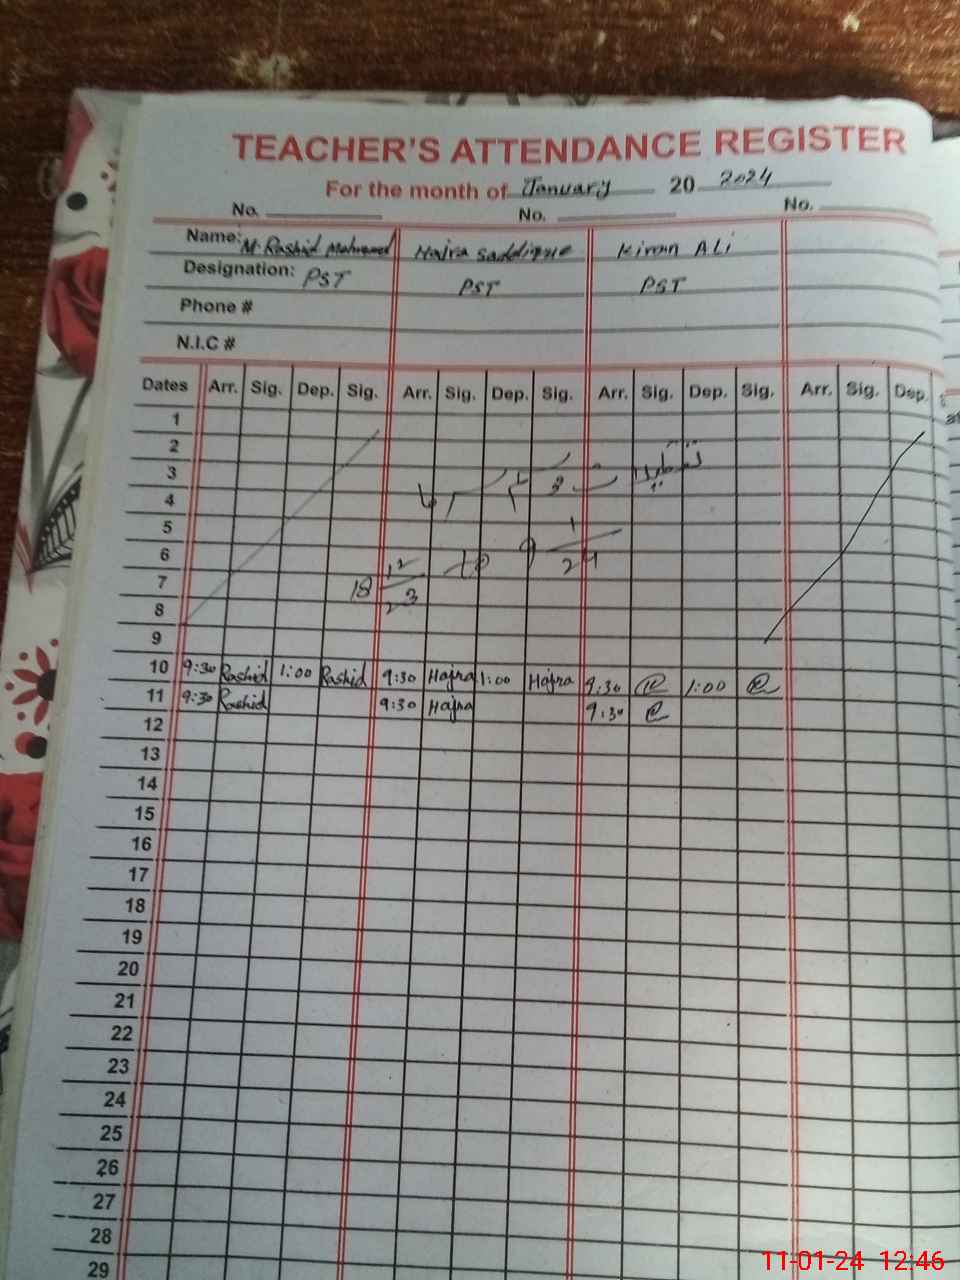 TEACHER'S ATTENDANCE REGISTER
For the month of January 20 2024
No. No. No.
Name: M. Rashid Mahmood Hajra Saddique Kiran ALi
Designation: PST PST PST
Phone #
N.I.C #
Dates Arr. Sig. Dep. Sig. Arr. Sig. Dep. Sig. Arr. Sig. Dep. Sig. Arr. Sig. Dep.
1
2
3
4
5
6
7
8
9
10 9:30 Rashid 1:00 Rashid 9:30 Hajra 1:00 Hajra 9:30 1:00
11 9:30 Rashid 9:30 Hajra 9:30
12
13
14
15
16
17
18
19
20
21
22
23
24
25
26
27
28
29
11-01-24 12:46